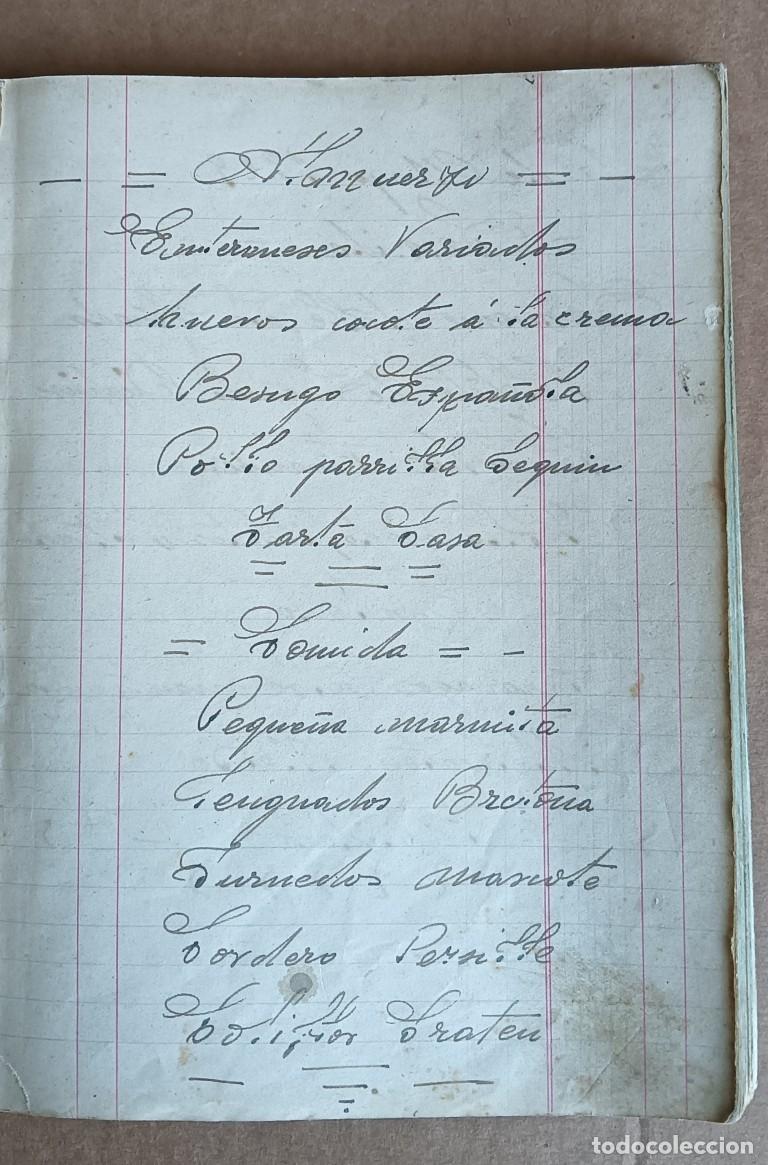 — = Almuerzo = —
Entremeses Variados
huevos cocote á la crema
Besugo Española
Pollo parrilla
Tarta Casa
= Comida = -
Pequeña marmita
Lenguados Bretona
Turnedos mascote
Cordero Persille
Coliflor Graten
todocoleccion